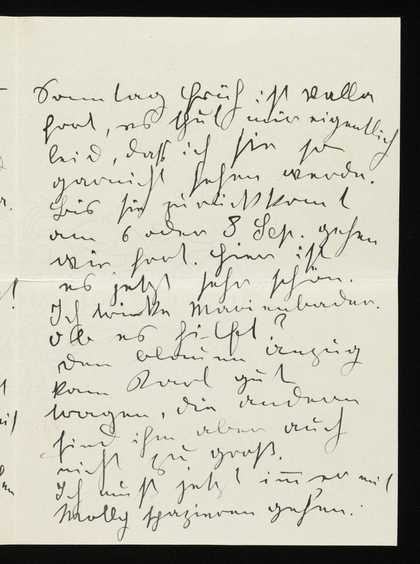 Sonntag früh ist Kalla
fort, es thut mir eigentlich
leid, daß ich sie so
garnicht sehen werde.
Bis sie zurückkommt
am 6 oder 8 Sep. gehen
wir fort. Hier ist
es jetzt sehr schön.
Ich trinke Marienbader.
Ob es hilft?
Den blauen Anzug
kann Karl gut
tragen, die anderen
sind ihm aber auch
nicht zu groß.
Ich muß jetzt immer mit
Molly spazieren gehen.